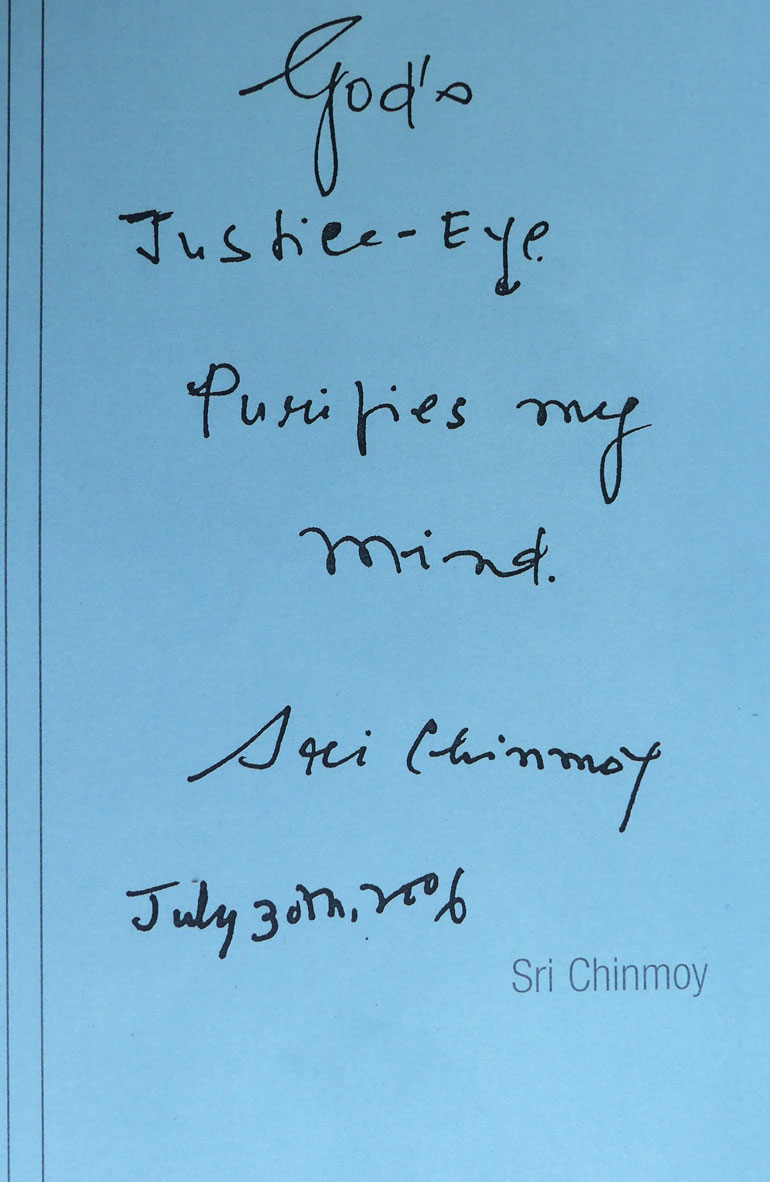 God's
Justice-Eye
Purifies my
mind.
Sri Chinmoy
July 30th, 2006
Sri Chinmoy